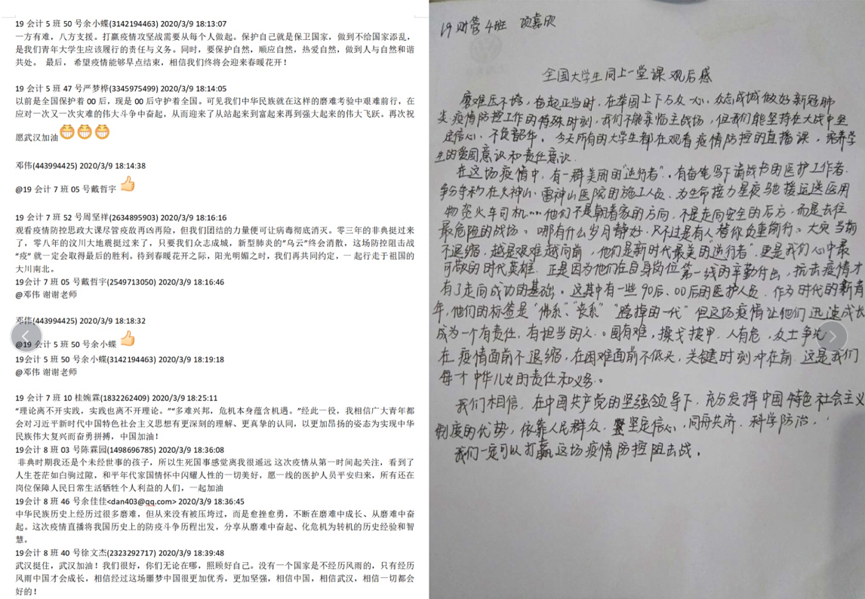 19 会计 5 班 50 号余小蝶(3142194463) 2020/3/9 18:13:07
一方有难，八方支援。打赢疫情攻坚战需要从每个人做起。保护自己就是保卫国家，做到不给国家添乱，
是我们青年大学生应该履行的责任与义务。同时，要保护自然，顺应自然，热爱自然，做到人与自然和谐
共处。 最后， 希望疫情能够早点结束，相信我们终将会迎来春暖花开！
19 会计 5 班 47 号严梦桦(3345975499) 2020/3/9 18:14:05
以前是全国保护着 00 后，现是 00 后守护着全国，可见我们中华民族就在这样的磨难考验中艰难前行，在
应对一次又一次灾难的伟大斗争中奋起，从而迎来了从站起来到富起来再到强大起来的伟大飞跃。再次祝
愿武汉加油
邓伟(443994425) 2020/3/9 18:14:38
@19 会计 7 班 05 号戴哲宇
19会计 7 班 52 号周坚祥(2634895903) 2020/3/9 18:16:16
观看疫情防控思政大课尽管疫敌再凶再险，但我们团结的力量便可让病毒彻底消灭。零三年的非典挺过来
了，零八年的汶川大地震挺过来了，只要我们众志成城，新型肺炎的“乌云”终会消散，这场防控阻击战
“疫” 就一定会取得最后的胜利。待到春暖花开之际，阳光明媚之时，我们再共同约定，一起行走于祖国的
大川南北。
19会计 7 班 05 号戴哲宇(2549713050) 2020/3/9 18:16:46
@邓伟 谢谢老师
邓伟(443994425) 2020/3/9 18:18:32
@19 会计 5 班 50 号余小蝶
19会计 5 班 50 号余小蝶(3142194463) 2020/3/9 18:19:18
@邓伟 谢谢老师
19 会计 7 班 10 桂婉霖(1832262409) 2020/3/9 18:25:11
“理论离不开实践，实践也离不开理论。”“多难兴邦，危机本身蕴含机遇。”经此一役，我相信广大青年都
会对习近平新时代中国特色社会主义思想有更深刻的理解、更真挚的认同，以更加昂扬的姿态为实现中华
民族伟大复兴而奋勇拼搏，中国加油！
19会计 8 班 03 号陈霖园(1498696785) 2020/3/9 18:36:08
非典时期我还是个未经世事的孩子，所以生死国事感觉离我很遥远 这次疫情从第一时间起关注，看到了
人生苍茫如白驹过隙，和平年代家国情怀中闪耀人性的一切美好，愿一线的医护人员平安归来，所有还在
岗位保障人民日常生活牺牲个人利益的人们，一起加油
19会计 8 班 46 号余佳佳<dan403@qq.com> 2020/3/9 18:36:45
中华民族历史上经历过很多磨难，但从来没有被压垮过，而是愈挫愈勇，不断在磨难中成长、从磨难中奋
起。这次疫情直播将我国历史上的防疫斗争历程出发，分享从磨难中奋起、化危机为转机的历史经验和智
慧。
19会计 8 班 40 号徐文杰(2323292717) 2020/3/9 18:39:48
武汉挺住，武汉加油！我们很好，你们无论在哪，照顾好自己，没有一个国家是不经历风雨的，只有经历
风雨中国才会成长，相信经过这场噩梦中国很更加优秀，更加坚强，相信中国，相信武汉，相信一切都会
好的！
19财管4班
全国大学生同上一堂课 观后感
磨难压不垮，奋起正当时，在举国上下万众一心，众志成城做好新冠肺
炎疫情防控工作的特殊时刻，我们不能亲临主战场，但我们能坚持在大战中坚
定信心，不负韶华。今天所有的大学生都在观看疫情防控的直播课，培养学
生的爱国意识和责任意识。
在这场疫情中，有一群美丽的“逆行者”。有奋笔写下请战书的医护工作者
争分夺秒在火神山、雷神山医院的施工人员，为生命接力星夜驰援运送医用
物资火车司机……他们不是朝着家的方向，不是走向安全的后方，而是去往
最危险的战场。哪有什么岁月静好，只不过是有人替你负重前行。大灾当前
不退缩，越是艰难越向前，他们是新时代最美的逆行者”更是我们心中最
可敬的时代英雄。正是因为他们在自身岗位第一线的辛勤付出，抗击疫情才
有了走向成功的基础。这其中有一些90后、00后的医护人员，作为时代的新青
年，他们的标签是“佛系”、“丧系”“垮掉的一代”但这场疫情让他们迅速成长
成为一个有责任，有担当的人。国有难，操戈披甲，人有危，众士争先
在疫情面前不退缩，在困难面前不低头，关键时刻冲在前，这是我们
每个中华儿女的责任和义务。
我们相信，在中国共产党的坚强领导下，充分发挥中国特色社会主义
制度的优势，依靠人民群众，坚定信心，同舟共济，科学防治，
我们一定可以打赢这场疫情防控阻击战。